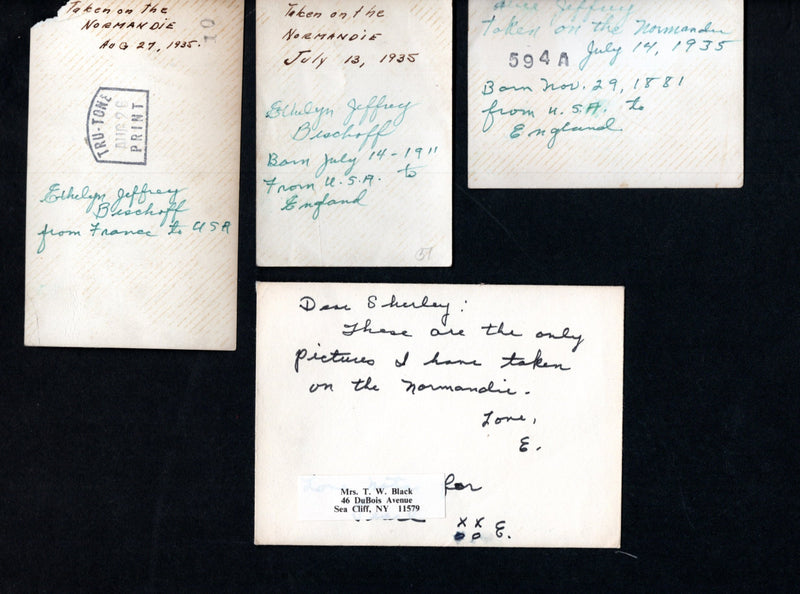 Taken on the
NORMANDIE
AUG 27, 1935.
10
TRU-TONE
AUG 26
PRINT
Ethelyn Jeffrey
Bischoff
from France to USA
Taken on the
NORMANDIE
July 13, 1935
Ethelyn Jeffrey
Bischoff
Born July 14-1911
From U.S.A. to
England
51
Alice Jeffrey
Taken on the Normandie
July 14, 1935
594A
Born Nov. 29, 1881
from U.S.A. to
England
Dear Shirley:
These are the only
pictures I have taken
on the Normandie.
Love,
E.
for
Mrs. T. W. Black
46 DuBois Avenue
Sea Cliff, NY 11579
x x E.
o o